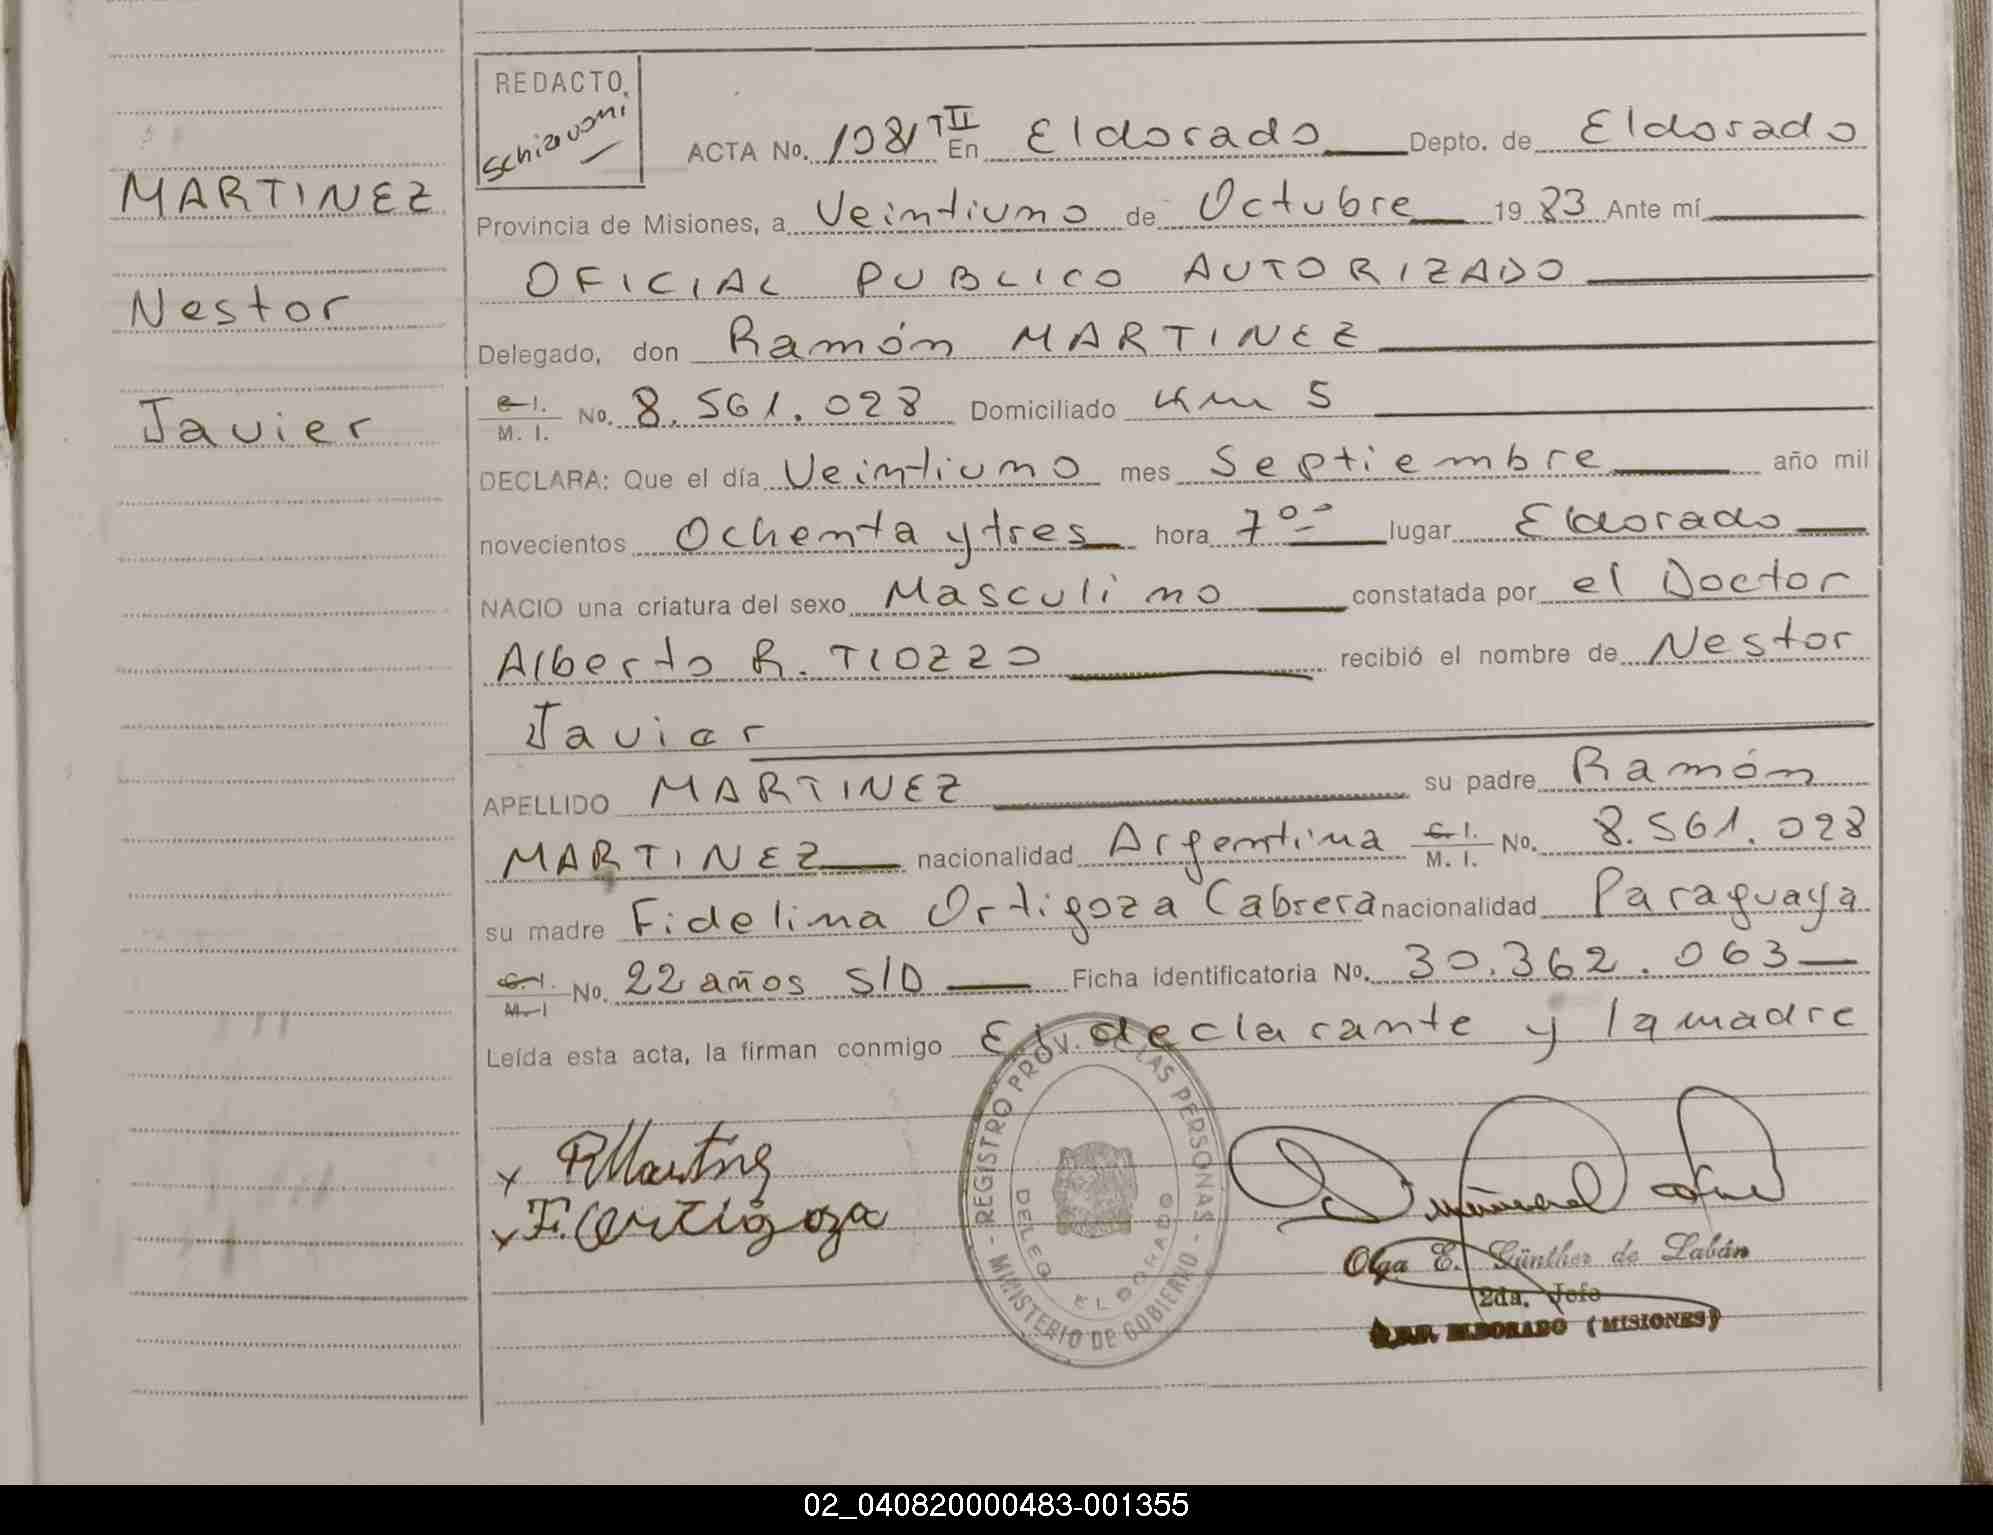 REDACTO
Schiavoni
ACTA No. 1081 TII En Eldorado Depto. de Eldorado
MARTINEZ
Provincia de Misiones, a Veintiuno de Octubre 1983 Ante mí
OFICIAL PUBLICO AUTORIZADO
Nestor
Delegado, don Ramón MARTINEZ
Javier
C. I.
M. I. No. 8.561.028 Domiciliado Km 5
DECLARA: Que el día Veintiuno mes Septiembre año mil
novecientos Ochenta y tres hora 7⁰⁰ lugar Eldorado
NACIO una criatura del sexo Masculino constatada por el Doctor
Alberto R. TIOZZO recibió el nombre de Nestor
Javier
APELLIDO MARTINEZ su padre Ramón
MARTINEZ nacionalidad Argentina C. I. M. I. No. 8.561.028
su madre Fidelina Ortigoza Cabrera nacionalidad Paraguaya
C. I. M. I No. 22 años S/D Ficha identificatoria No. 30.362.063
Leída esta acta, la firman conmigo El declarante y la madre
REGISTRO PROV. DE LAS PERSONAS
- MINISTERIO DE GOBIERNO -
DELEG. ELDORADO
x RMartinez
x F. Ortigoza
Olga E. Günther de Labán
2da. Jefe
ELDORADO (MISIONES)
02_040820000483-001355